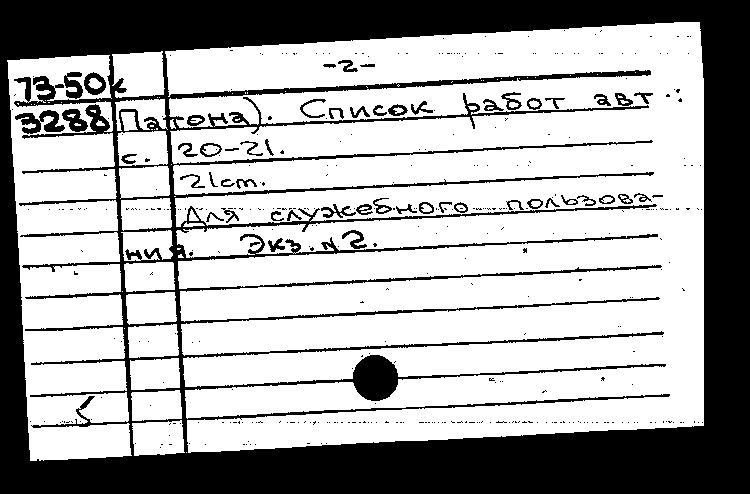 -2-
73-50к
3288 Патона). Список работ авт.:
с. 20-21.
21см.
Для служебного пользова-
ния. Экз. №2.
5